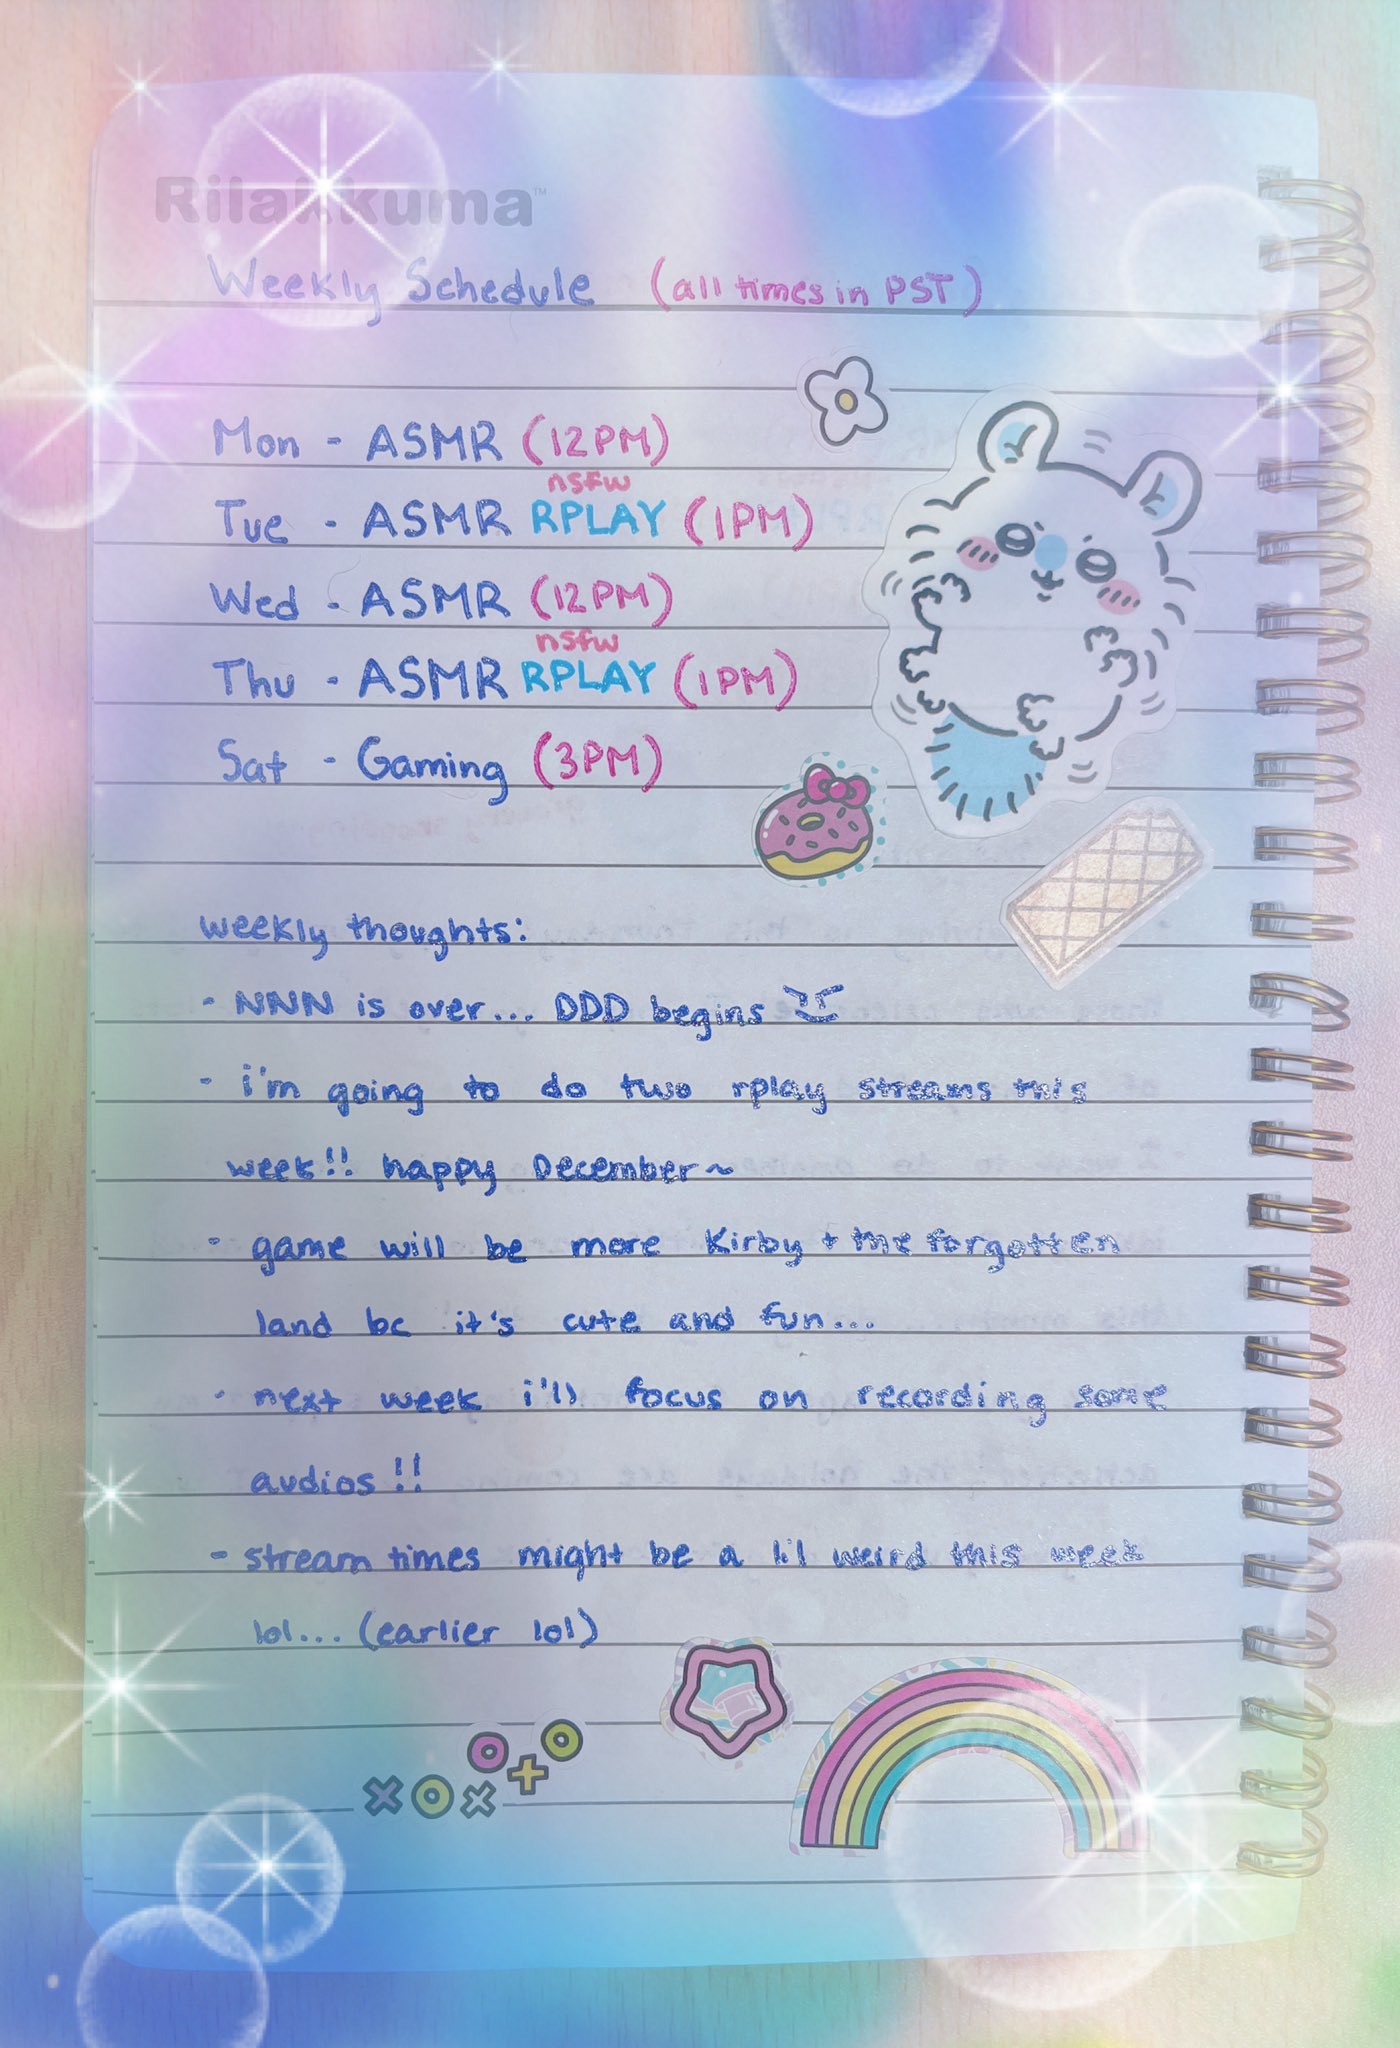 Rilakkuma™
Weekly Schedule (all times in PST)
Mon - ASMR (12PM)
nsfw
Tue - ASMR RPLAY (1PM)
Wed - ASMR (12PM)
nsfw
Thu - ASMR RPLAY (1PM)
Sat - Gaming (3PM)
weekly thoughts:
- NNN is over... DDD begins
- i'm going to do two rplay streams this
week!! happy December~
- game will be more Kirby + the forgotten
land bc it's cute and fun...
- next week i'll focus on recording some
audios!!
- stream times might be a lil weird this week
lol... (earlier lol)